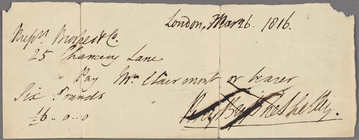 London, Mar 26. 1816.
Messrs Brookes & Co.
25 Chancery Lane
Pay Mrs Clairmont or bearer
Six Pounds
£6-0..0
Percy Bysshe Shelley.